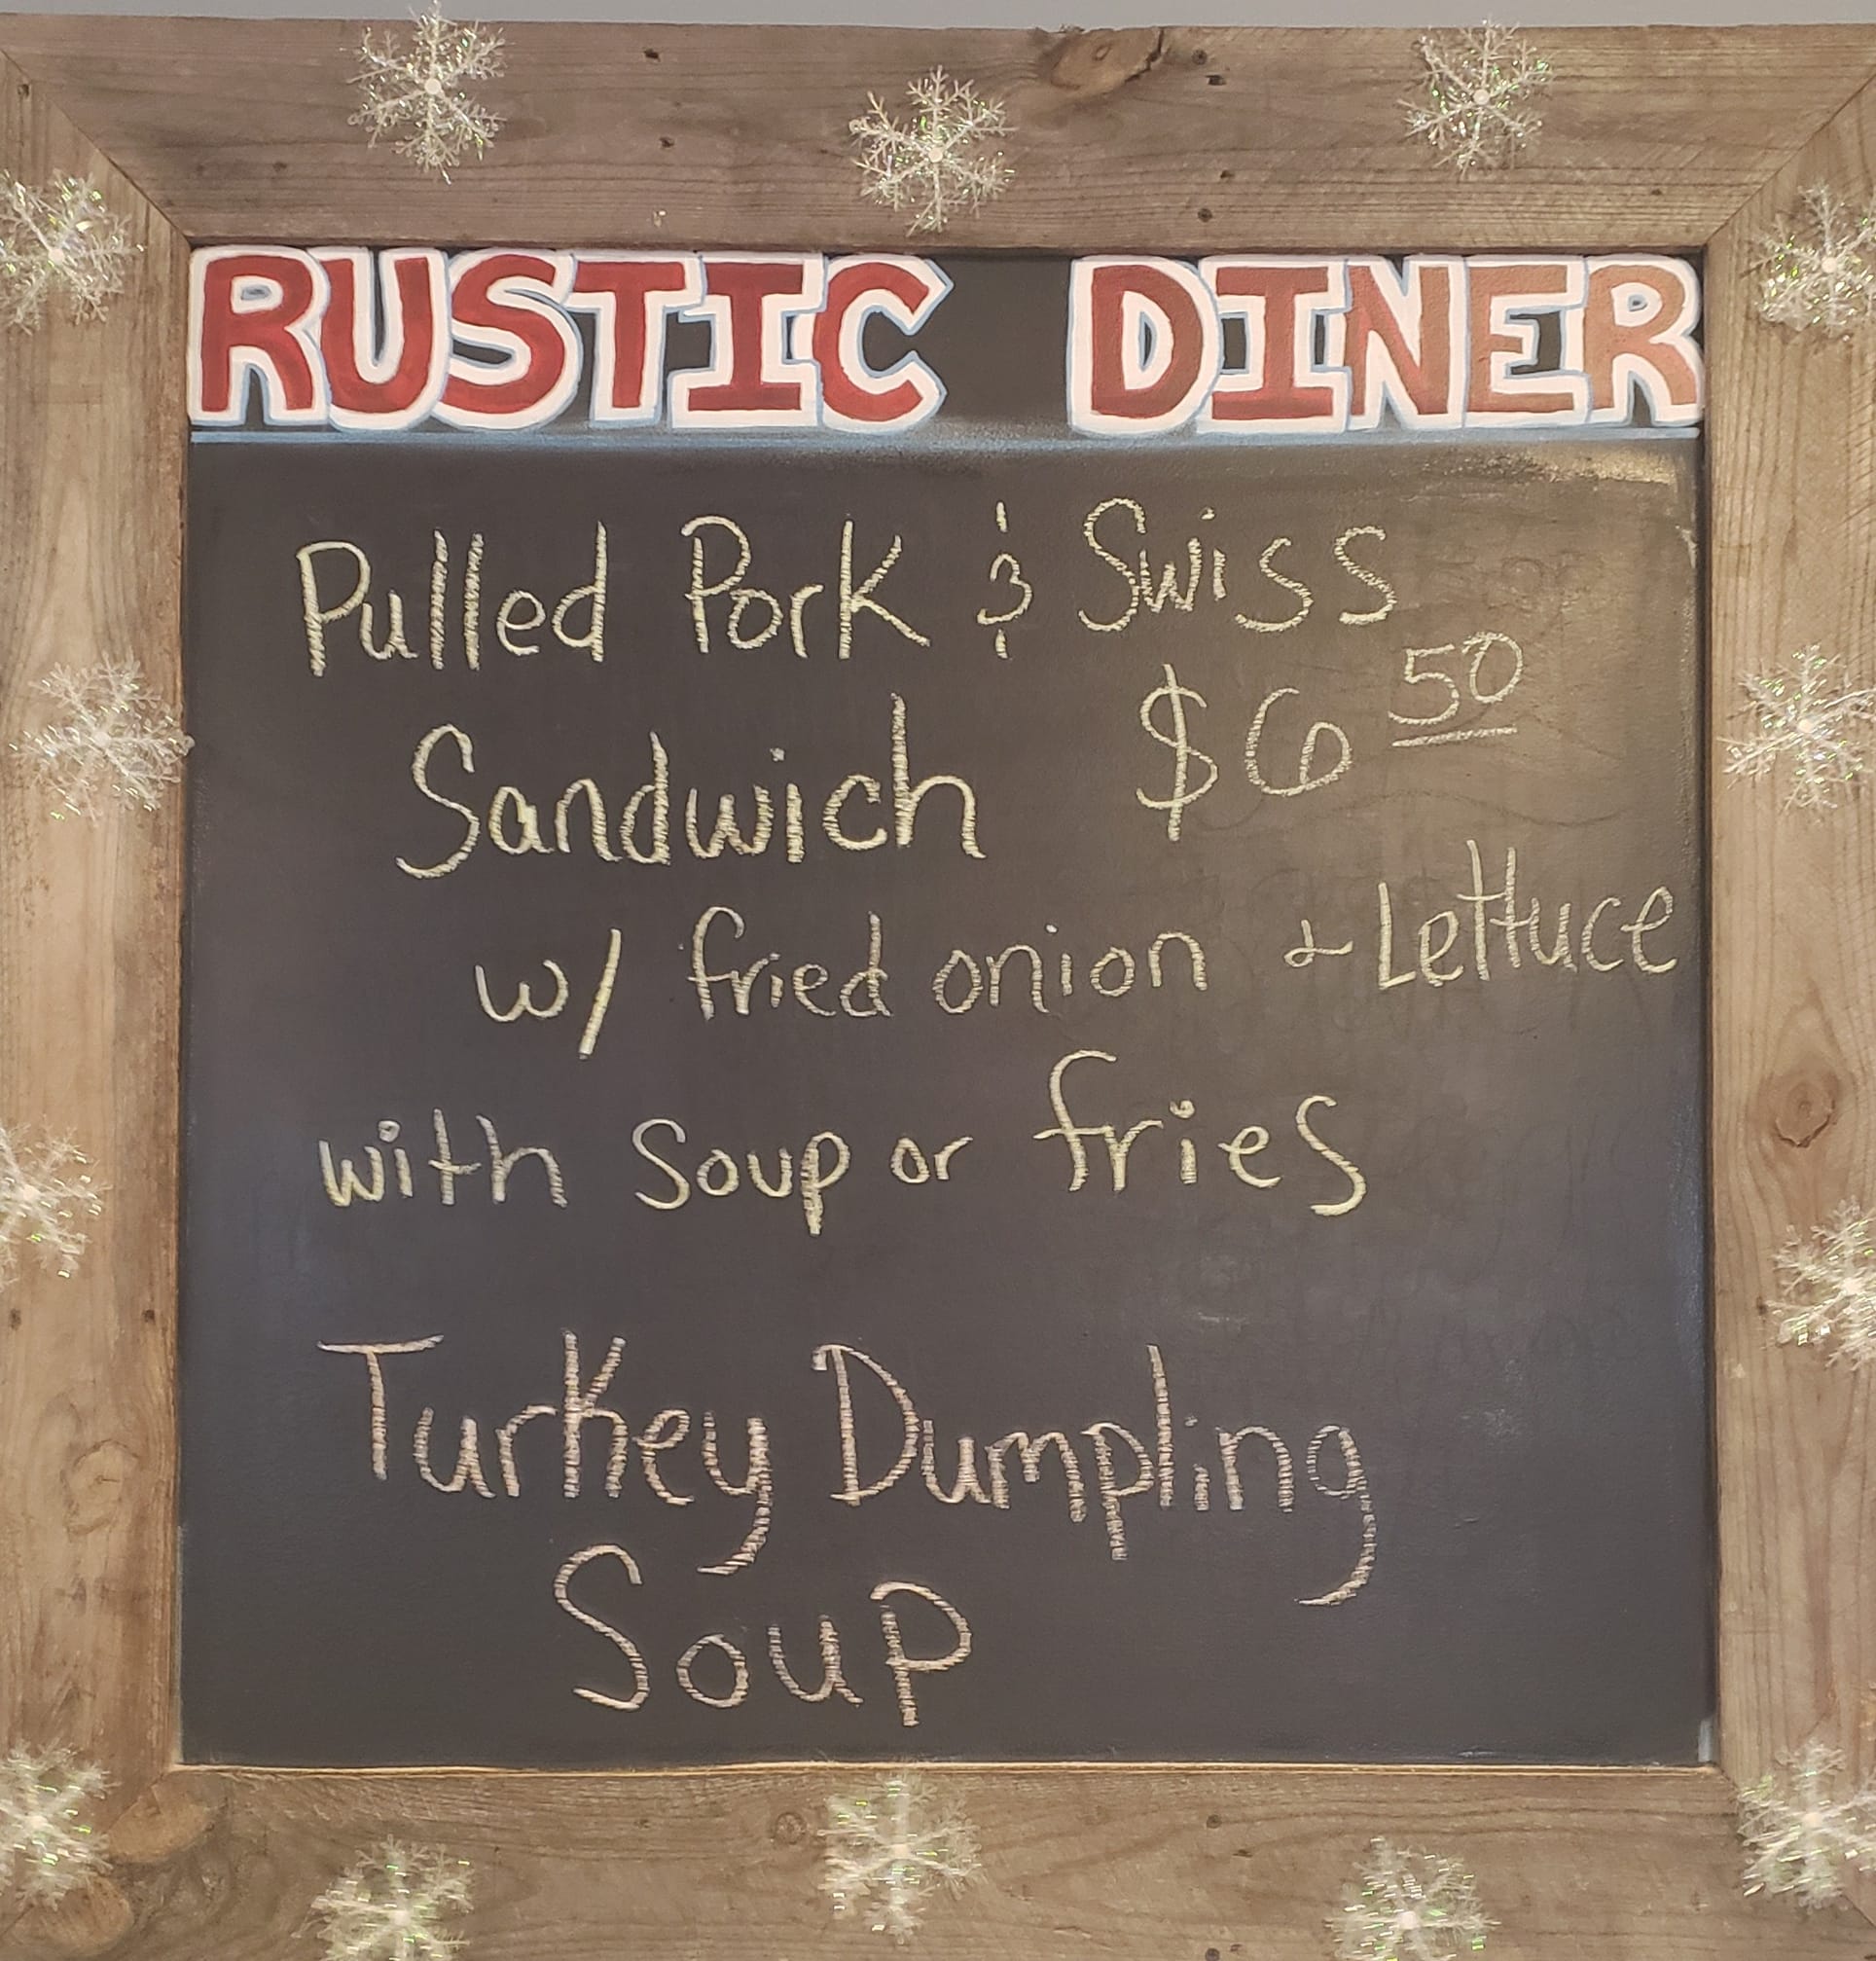 RUSTIC DINER
Pulled Pork & Swiss
Sandwich $6 50
w/ fried onion & Lettuce
with soup or fries
Turkey Dumpling
Soup